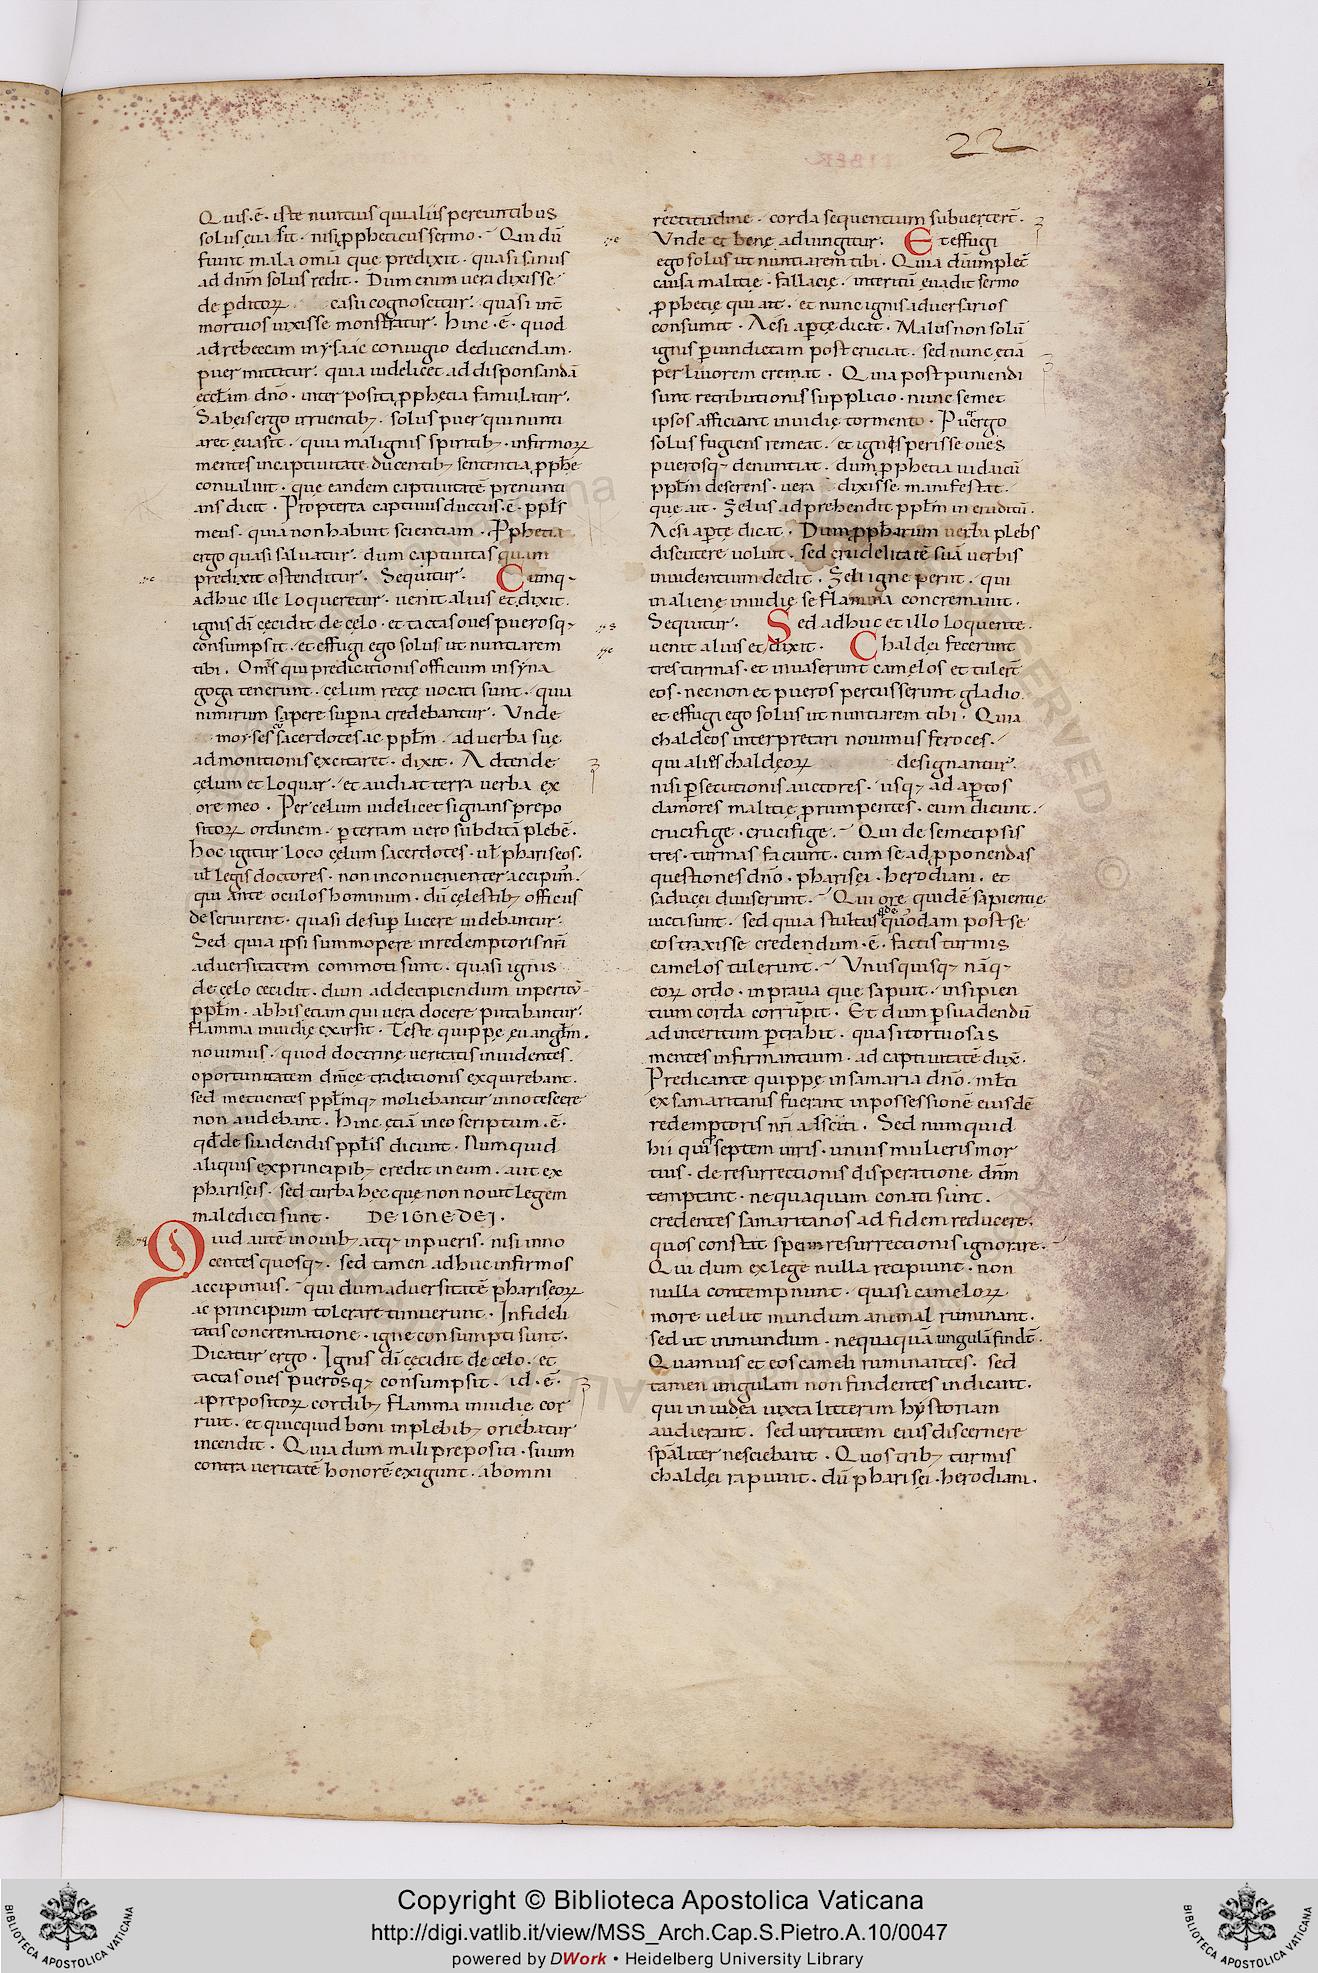 22
Quis · ē · iste nuntius qui aliis pereuntibus
solus euasit · nisi ꝓpheticus sermo · Qui dū
fiunt mala om̄ia que predixit · quasi sanus
ad dn̄m solus redit · Dum enim uera dixisse
de ꝑditoꝝ casu cognoscitur · quasi int̄
mortuos uixisse monstratur · hinc · ē · quod
ad rebeccam in ysaac coniugio deducendam ·
puer mittitur · quia uidelicet ad disponsandā
eccl̄am dn̄o · inter posita ꝓphetia famulatur ·
Sabeis ergo irruentibꝫ · solus puer qui nunti
aret euasit · quia malignis spiritibꝫ · infirmoꝝ
mentes in captiuitate ducentibꝫ sententia ꝓphę
conualuit · que eandem captiuitatē prenunti
ans dicit · Propterea captiuus ductus · ē · ppl̄s
meus · quia non habuit scientiam · Pphetia
ergo quasi saluatur · dum captiuitas quam
predixit ostenditur · Sequitur · Cumq·
adhuc ille loqueretur · uenit alius et dixit ·
ignis dī cecidit de cęlo · et tactas oues puerosqꝫ
consumpsit · et effugi ego solus ut nuntiarem
tibi · Om̄s qui predicationis officium in syna
goga tenerunt · cęlum rectę uocati sunt · quia
nimirum sapere suꝑna credebantur · Unde
moyses sacerdotes ac ppl̄m · ad uerba suę
admonitionis excitaret · dixit · Adtende
cęlum et loquar · et audiat terra uerba ex
ore meo · Per cęlum uidelicet signans prepo
sitoꝝ ordinem · ꝑ terram uero subditā plebē ·
hoc igitur loco cęlum sacerdotes · ul̄ phariseos ·
ul̄ legis doctores · non inconuenienter accipim᷒ ·
qui ante oculos hominum · dū cęlestibꝫ officiis
deseruirent · quasi desuꝑ lucere uidebantur ·
Sed quia ipsi summopere in redemptoris nr̄i
aduersitatem commoti sunt · quasi ignis
de cęlo cecidit · dum ad decipiendum inperitū
ppl̄m · ab his etiam qui uera docere putabantur ·
flamma inuidię exarsit · Teste quippe euangl̄m ·
nouimus · quod doctrinę ueritatis inuidentes ·
oportunitatem dn̄icę traditionis exquirebant ·
sed metuentes ppl̄mqꝫ moliebantur innotescere
non audebant · hinc etiā in eo scriptum · ē ·
qd̄ de suadendis ppl̄is dicunt · Numquid
aliquis ex principibꝫ credit in eum · aut ex
phariseis · sed turba hęc que non nouit legem
maledicti sunt · DE IGNE DEI ·
Quid autē in ouibꝫ atqꝫ in pueris · nisi inno
centes quosqꝫ · sed tamen adhuc infirmos
accipimus · qui dum aduersitatē phariseoꝝ
ac principum tolerare timuerunt · Infideli
tatis concrematione · igne consumpti sunt ·
Dicatur ergo · Ignis dī cecidit de celo · et
tactas oues puerosqꝫ consumpsit · id · ē ·
a prepositoꝝ cordibꝫ flamma inuidie cor
ruit · et quicquid boni in plebibꝫ oriebatur
incendit · Quia dum mali prepositi · suum
contra ueritatē honorē exigunt · a bomni
rectitudine · corda sequentium subuertert̄ ·
Unde et bene adiungitur · Et effugi
ego solus ut nuntiarem tibi · Quia dū implet̄
causa malitię · fallacię · interitū euadit sermo
ꝓphetię qui ait · et nunc ignis aduersarios
consumit · Ac si aꝑte dicat · Malus non solū
ignis ꝑ uindictam post cruciat · sed nunc etiā
per liuorem cremat · Quia post puniendi
sunt retributionis supplicio · nunc semet
ipsos afficiunt inuidię tormento · Puer ergo
solus fugiens remeat · et ignis perisse oues
puerosqꝫ denuntiat · dum ꝓphetia iudaicū
ppl̄m deserens · uera dixisse manifestat ·
que ait · Zelus adprehendit ppl̄m in eruditū ·
Ac si aꝑte dicat · Dum ꝓpharum uerba plebs
discutere uoluit · sed crudelitatē suā uerbis
inuidentium dedit · Zeli igne periit · qui
in alienę inuidię se flamma concremauit ·
Sequitur · Sed adhuc et illo loquente ·
uenit alius et dixit · Chaldei fecerunt
tres turmas · et inuaserunt camelos et tulert̄
eos · necnon et pueros percusserunt gladio
et effugi ego solus ut nuntiarem tibi · Quia
chaldeos interpretari nouimus feroces ·
qui alies chaldęoꝝ designantur ·
nisi ꝑsecutionis auctores · usqꝫ ad aꝑtos
clamores malitię ꝓrumpentes · cum dicunt ·
crucifige · crucifige · Qui de semetipsis
tres · turmas faciunt · cum se ad ꝓponendas
questiones dn̄o · pharisęi · herodiani · et
saducęi diuiserunt · Qui ore quidē sapientię
uicti sunt · sed quia stultus quodam post se
eos traxisse credendum · ē · factis turmis
camelos tulerunt · Unusquisqꝫ nāqꝫ
eoꝝ ordo · in praua que sapuit · insipien
tium corda corrupit · Et dum ꝑsuadendū
ad interitum ꝑtrahit · quasi tortuosas
mentes infirmantium · ad captiuitatē dux̄ ·
Predicante quippe in samaria dn̄o · ml̄ti
ex samaritanis fuerant in possessionē eiusdē
redemptoris nr̄i asciti · Sed numquid
hii qui septem uiris · unius mulieris mor
tuis · de resurrectionis disperatione dn̄m
temptant · nequaquam conati sunt ·
credentes samaritanos ad fidem reducere ·
quos constat spem resurrectionis ignorare ·
Qui dum ex lege nulla recipiunt · non
nulla contempnunt · quasi cameloꝝ
more uelut mundum animal ruminant ·
sed ut inmundum · nequaquā ungulā findt̄ ·
Quamuis et eos cameli ruminantes · sed
tamen ungulam non findentes indicant ·
qui in iudęa iuxta litteram hystoriam
audierant · sed uirtutem eius discernere
spālliter nesciebant · Quos tribꝫ turmis
chaldęi rapiunt · dū pharisęi · herodiani ·
Copyright © Biblioteca Apostolica Vaticana
http://digi.vatlib.it/view/MSS_Arch.Cap.S.Pietro.A.10/0047
powered by DWork • Heidelberg University Library
BIBLIOTECA APOSTOLICA VATICANA
BIBLIOTECA APOSTOLICA VATICANA